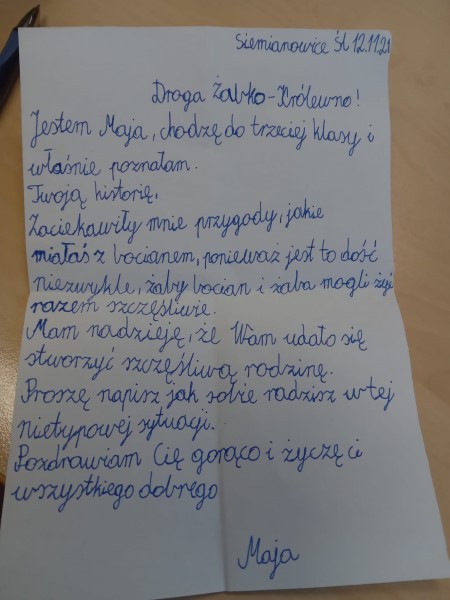 Siemianowice Śl 12.11.21
Droga Żabko-Królewno!
Jestem Maja, chodzę do trzeciej klasy i
właśnie poznałam.
Twoją historię.
Zaciekawiły mnie przygody, jakie
miałaś z bocianem, ponieważ jest to dość
niezwykłe, żaby bocian i żaba mogli żyć
razem szczęśliwie.
Mam nadzieję, że Wam udało się
stworzyć szczęśliwą rodzinę.
Proszę napisz jak sobie radzisz w tej
nietypowej sytuacji.
Pozdrawiam Cię gorąco i życzę ci
wszystkiego dobrego
Maja